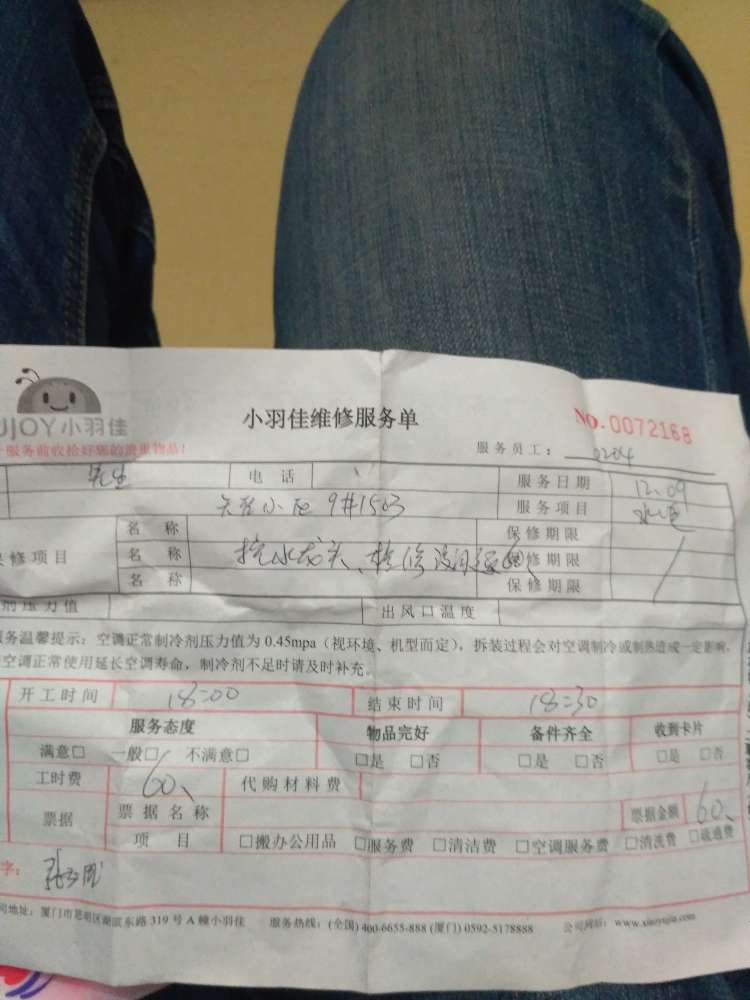 UJOY小羽佳
小羽佳维修服务单
NO.0072168
服务前收拾好您的贵重物品!
服务员工: 0204
先生 电话 服务日期 12.09
小区 9#1503 服务项目
名称 保修期限
修项目 名称 水龙头、检修 修期限
名称 保修期限
剂压力值 出风口温度
务温馨提示:空调正常制冷剂压力值为 0.45mpa(视环境、机型而定),拆装过程会对空调制冷或制热造成一定影响,
空调正常使用延长空调寿命,制冷剂不足时请及时补充。
开工时间 18:00 结束时间 18:30
服务态度 物品完好 备件齐全 收到卡片
满意□ 一般□ 不满意□ □是 □否 □是 □否 □是 □否
工时费 60、 代购材料费
票据 票据名称 票据金额 60、
项目 □搬办公用品 □服务费 □清洁费 □空调服务费 □清洗费 □疏通费
字:
司地址:厦门市思明区湖滨东路 319 号 A 幢小羽佳 服务热线:(全国) 400-6655-888 (厦门) 0592-5178888 公司网站: www.xiaoyujia.com